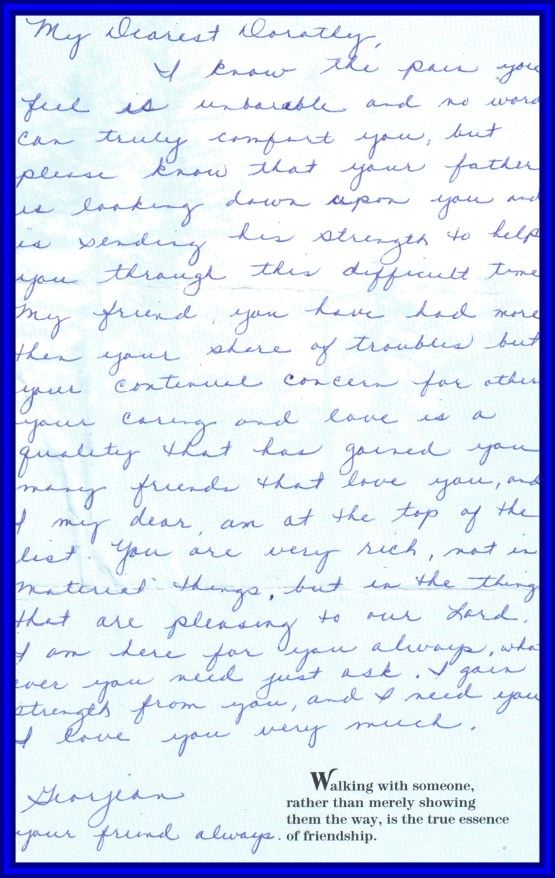 My Dearest Dorothy,
I know the pain you
feel is unbarable and no word
can truly comfort you, but
please know that your father
is looking down upon you and
is sending his strength to help
you through this difficult time
My friend, you have had more
then your share of troubles but
your continued concern for other
your caring and love is a
quality that has gained you
many friends that love you, and
I my dear, am at the top of the
list. You are very rich, not in
material things, but in the thing
that are pleasing to our Lord.
I am here for you always, wha
ever you need just ask. I gain
strength from you, and I need you
I love you very much.
Georjean
your friend always.
Walking with someone,
rather than merely showing
them the way, is the true essence
of friendship.